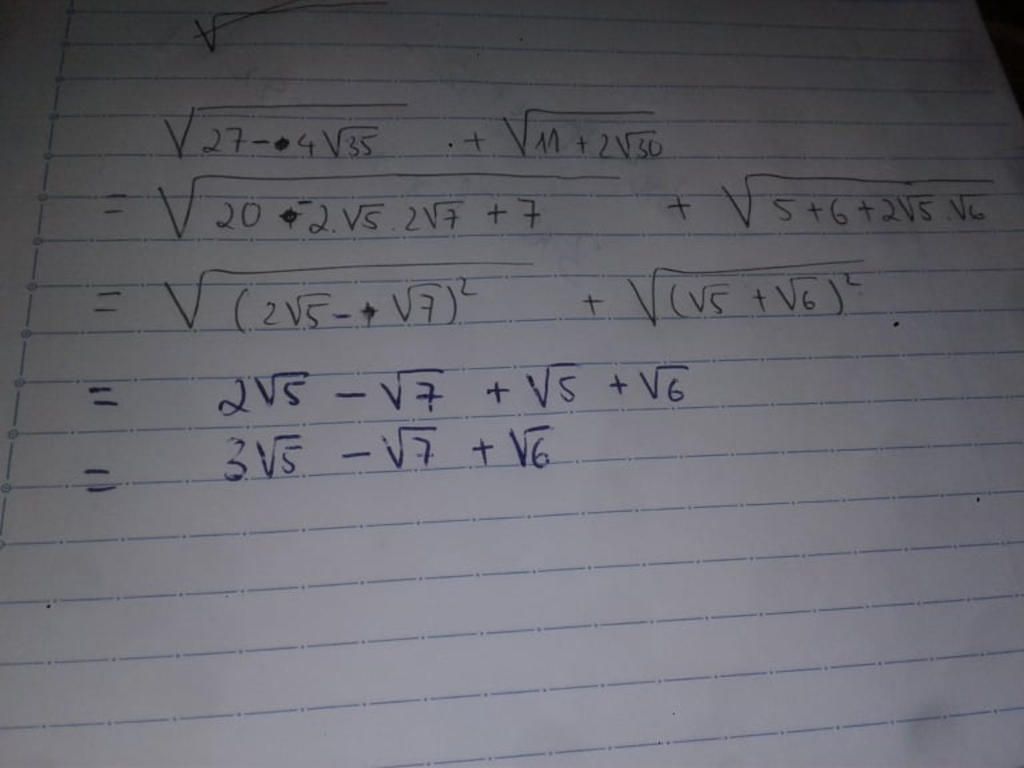 √
√27 - 4√35 + √11 + 2√30
= √20 - 2.√5.2√7 + 7 + √5 + 6 + 2√5.√6
= √(2√5 - √7)² + √(√5 + √6)²
= 2√5 - √7 + √5 + √6
= 3√5 - √7 + √6